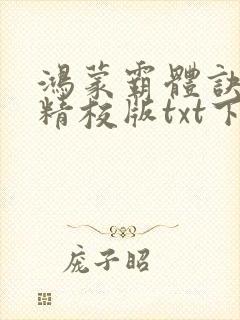 鴻蒙霸體訣
精校版txt下
庞子昭